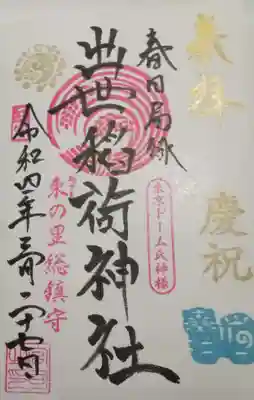 奉拝
慶祝
春日局縁
出世稲荷神社
東京ドーム氏神様
東の里総鎮守
令和四年二月二十七日